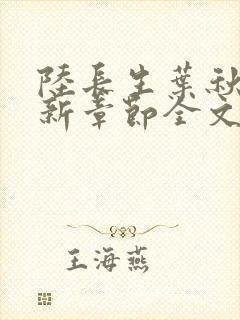 陸長生葉秋
新章節全文
王海燕